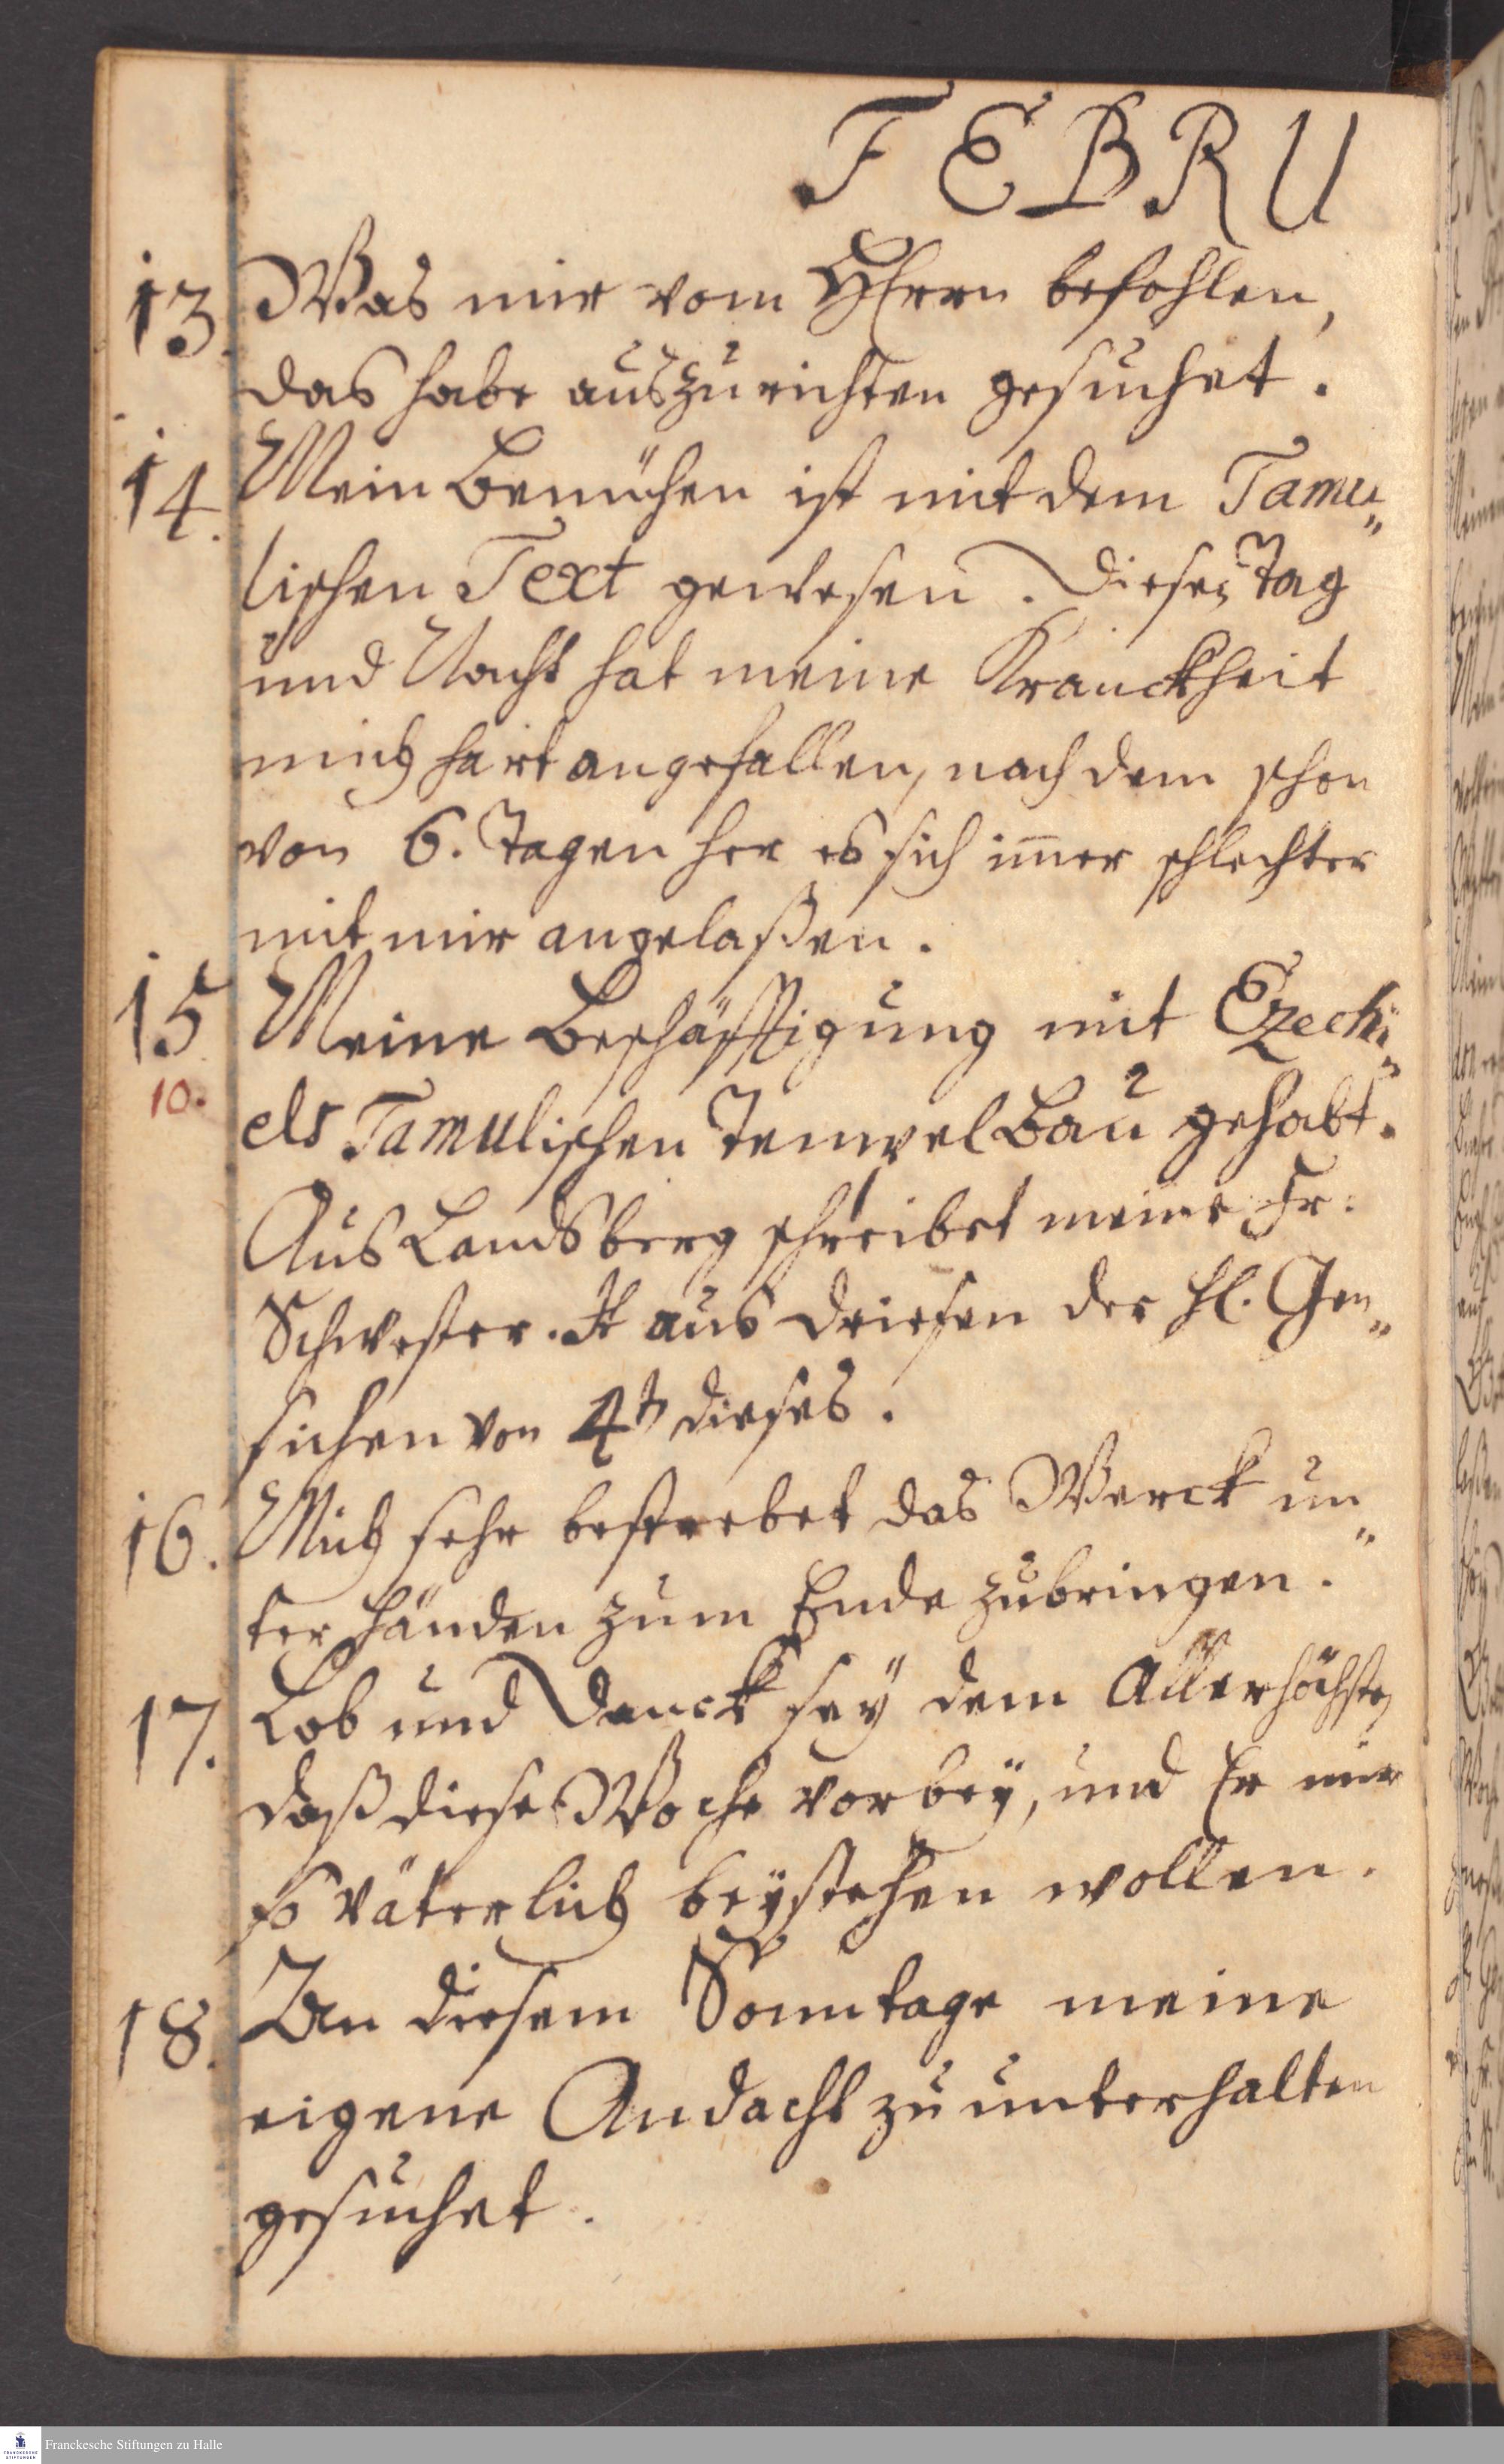 FEBRU
13. Was mir vom HErrn befohlen,
das habe auszurichten gesuchet.
14. Mein Bemühen ist mit dem Tamu„
lischen Text gewesen. Diesen Tag
und Nacht hat meine Kranckheit
mich hart angefallen, nach dem schon
von 6. Tagen her es sich im̅er schlechter
mit mir angelaßen.
15 Meine Beschäfftigung mit Ezechi„
10. els Tamulischen Tempel Bau gehabt.
Aus Landsberg schreibet meine Fr:
Schwester. It aus Driesen der Hl. Gen„
sichen von 4t dieses.
16. Mich sehr bestrebet das Werck un„
ter Händen zum Ende zubringen.
17. Lob und Danck seÿ dem Allerhöchsten
daß diese Woche vorbeÿ, und Er mir
so väterlich beÿstehen wollen.
18. An diesem Sonntage meine
eigene Andacht zu unterhalten
gesuchet.
FRANCKESCHE STIFTUNGEN
Franckesche Stiftungen zu Halle